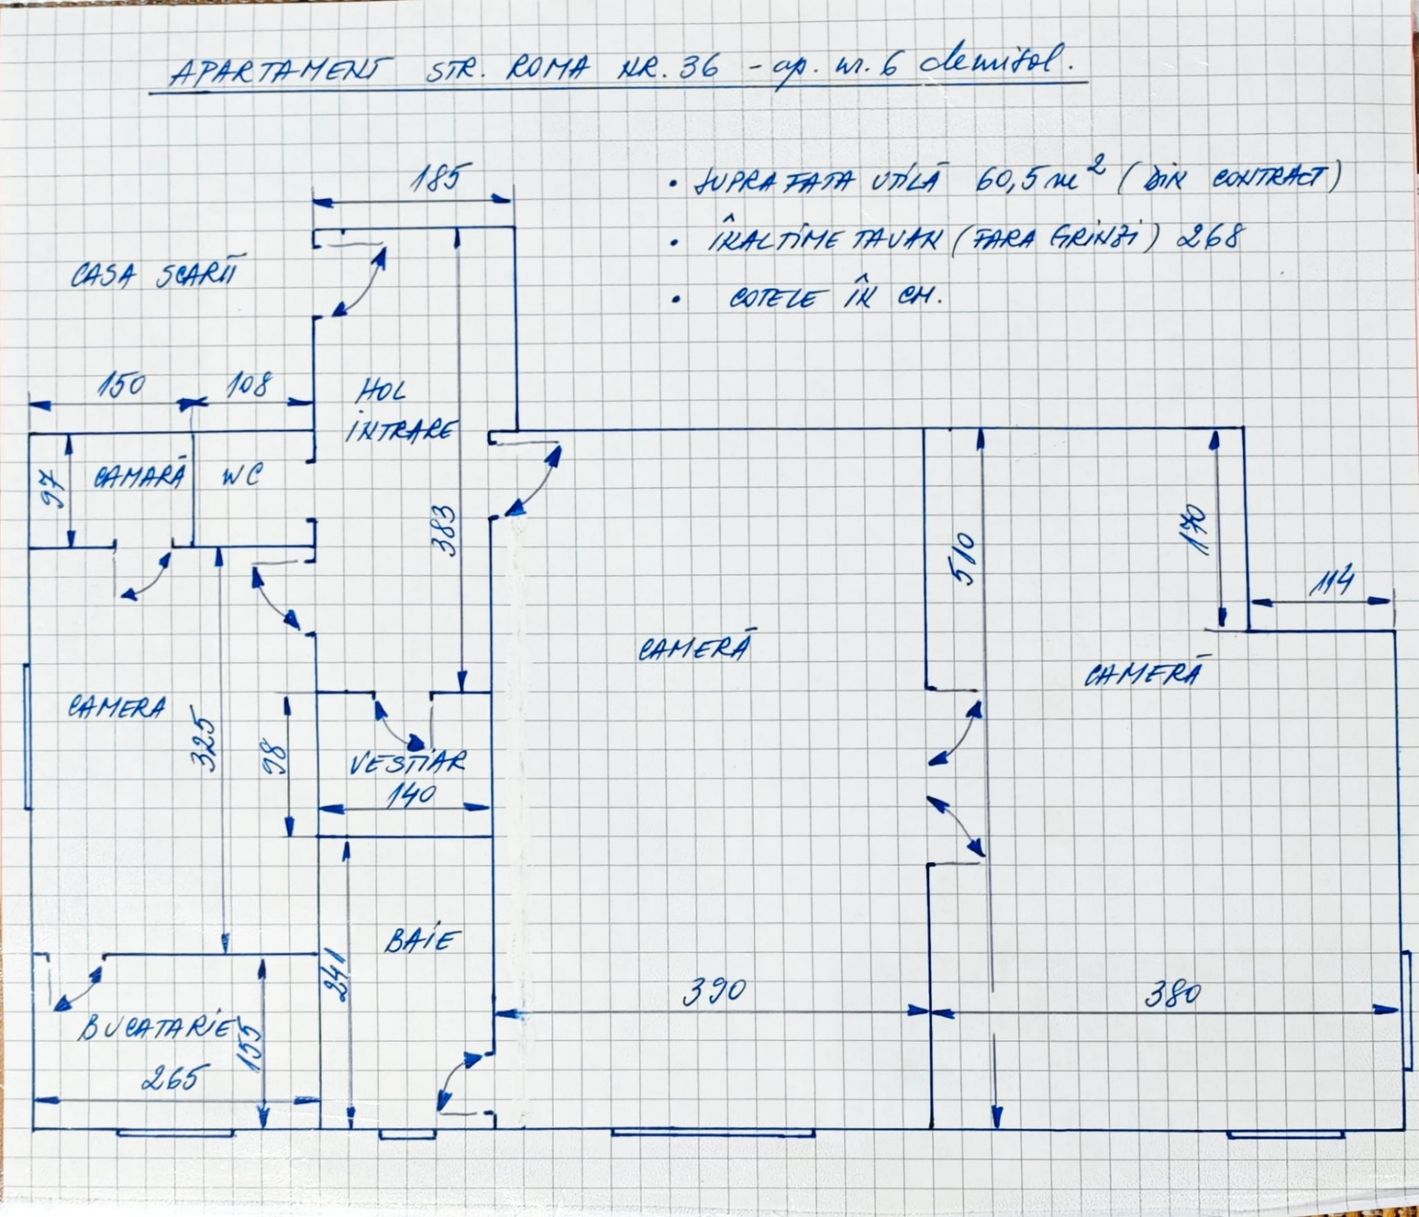 APARTAMENT STR. ROMA NR. 36 - ap. nr. 6 demisol.
185
• SUPRAFATA UTILĂ 60,5 m² (DIN CONTRACT)
• ÎNALTIME TAVAN (FARA GRINZI) 268
• COTELE ÎN CM.
CASA SCARII
150
108
HOL
INTRARE
97
CAMARĂ
WC
383
510
170
114
CAMERĂ
CAMERĂ
CAMERA
325
98
VESTIAR
140
BAIE
241
390
380
BUCATARIE
155
265